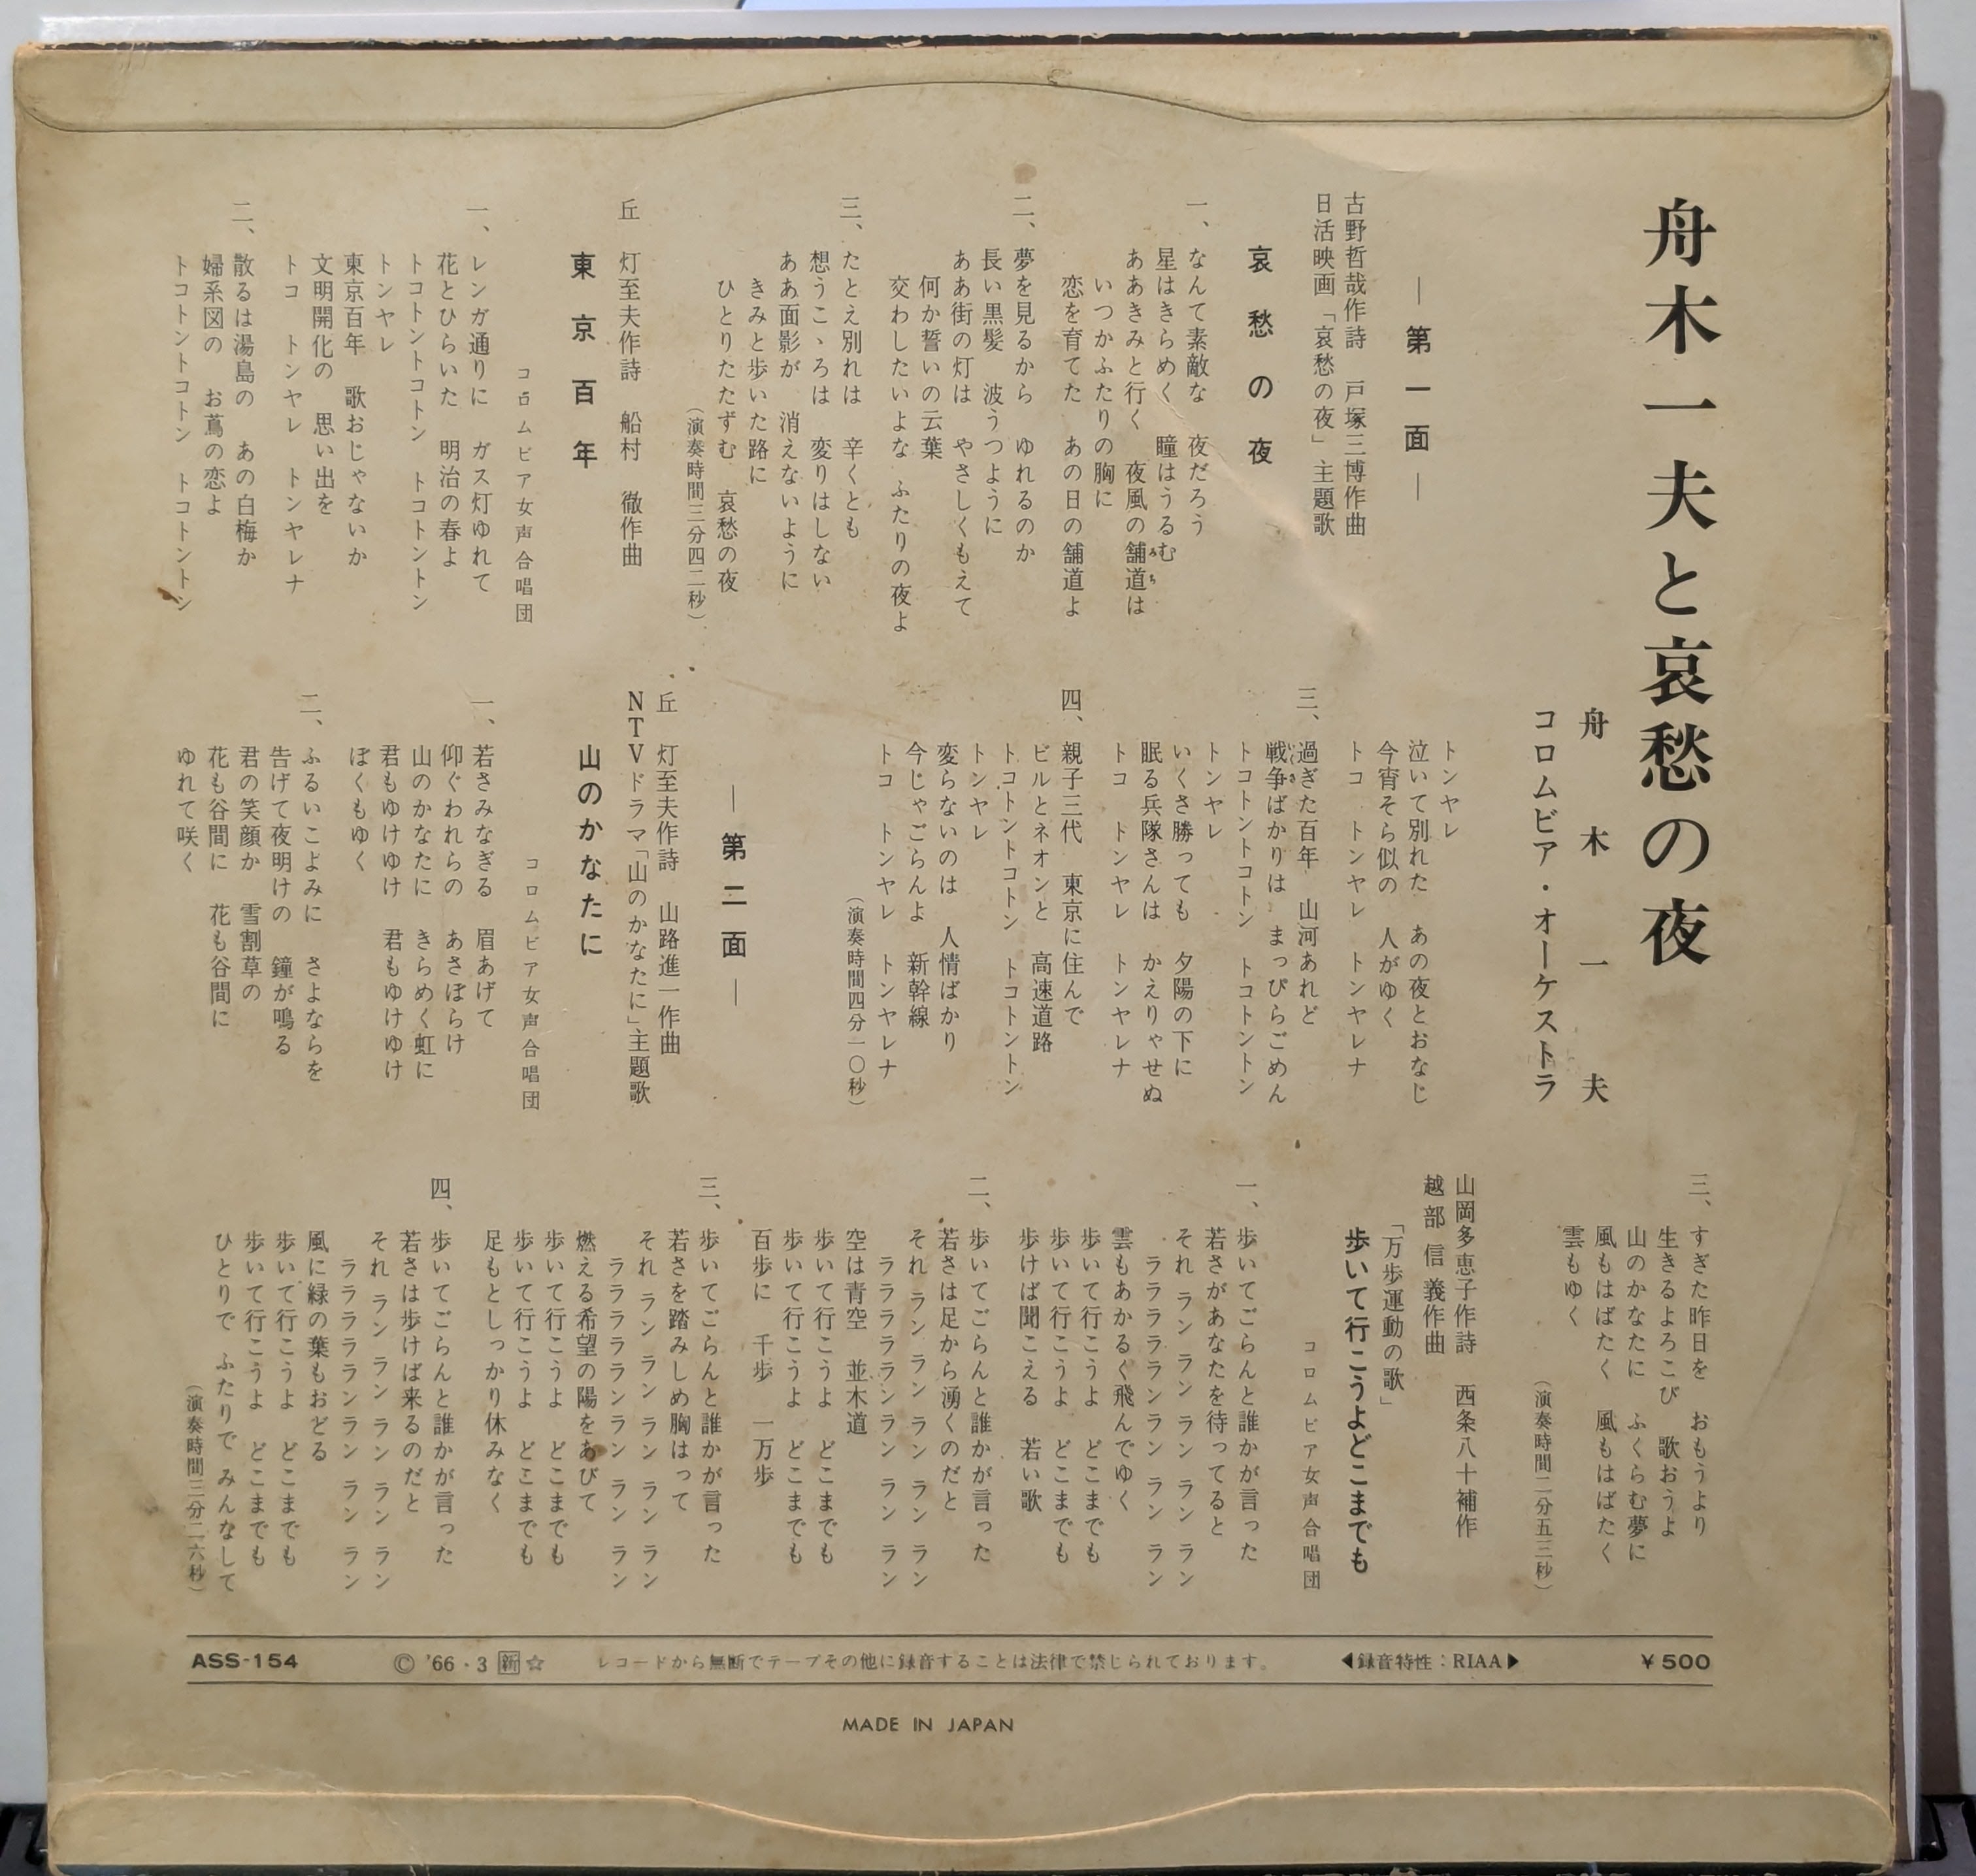 舟木一夫と哀愁の夜
舟木一夫
コロムビア・オーケストラ
―第一面―
古野哲哉作詩　戸塚三博作曲
日活映画「哀愁の夜」主題歌
哀愁の夜
一、なんて素敵な　夜だろう
星はきらめく　瞳はうるむ
ああきみと行く　夜風の舗道は
みち
いつかふたりの胸に
恋を育てた　あの日の舗道よ
二、夢を見るから　ゆれるのか
長い黒髪　波うつように
ああ街の灯は　やさしくもえて
何か誓いの云葉
交わしたいよな　ふたりの夜よ
三、たとえ別れは　辛くとも
想うこゝろは　変りはしない
ああ面影が　消えないように
きみと歩いた路に
ひとりたたずむ　哀愁の夜
（演奏時間三分四二秒）
丘　灯至夫作詩　船村　徹作曲
東京百年
コロムビア女声合唱団
一、レンガ通りに　ガス灯ゆれて
花とひらいた　明治の春よ
トコトントコトン　トコトントン
トンヤレ
東京百年　歌おじゃないか
文明開化の　思い出を
トコ　トンヤレ　トンヤレナ
二、散るは湯島の　あの白梅か
婦系図の　お蔦の恋よ
トコトントコトン　トコトントン
トンヤレ
泣いて別れた　あの夜とおなじ
今宵そら似の　人がゆく
トコ　トンヤレ　トンヤレナ
三、過ぎた百年　山河あれど
戦争ばかりは　まっぴらごめん
いくさ
トコトントコトン　トコトントン
トンヤレ
いくさ勝っても　夕陽の下に
眠る兵隊さんは　かえりゃせぬ
トコ　トンヤレ　トンヤレナ
四、親子三代　東京に住んで
ビルとネオンと　高速道路
トコトントコトン　トコトントン
トンヤレ
変らないのは　人情ばかり
今じゃごらんよ　新幹線
トコ　トンヤレ　トンヤレナ
（演奏時間四分一〇秒）
―第二面―
丘　灯至夫作詩　山路進一作曲
NTVドラマ「山のかなたに」主題歌
山のかなたに
コロムビア女声合唱団
一、若さみなぎる　眉あげて
仰ぐわれらの　あさぼらけ
山のかなたに　きらめく虹に
君もゆけゆけ　君もゆけゆけ
ぼくもゆく
二、ふるいこよみに　さよならを
告げて夜明けの　鐘が鳴る
君の笑顔か　雪割草の
花も谷間に　花も谷間に
ゆれて咲く
三、すぎた昨日を　おもうより
生きるよろこび　歌おうよ
山のかなたに　ふくらむ夢に
風もはばたく　風もはばたく
雲もゆく
（演奏時間二分五三秒）
山岡多恵子作詩　西条八十補作
越部信義作曲
「万歩運動の歌」
歩いて行こうよどこまでも
コロムビア女声合唱団
一、歩いてごらんと誰かが言った
若さがあなたを待ってると
それ　ラン　ラン　ラン　ラン　ラン
ララララララン　ラン　ラン
雲もあかるく飛んでゆく
歩いて行こうよ　どこまでも
歩いて行こうよ　どこまでも
歩けば聞こえる　若い歌
二、歩いてごらんと誰かが言った
若さは足から湧くのだと
それ　ラン　ラン　ラン　ラン　ラン
ララララランラン　ラン　ラン
空は青空　並木道
歩いて行こうよ　どこまでも
歩いて行こうよ　どこまでも
百歩に　千歩　一万歩
三、歩いてごらんと誰かが言った
若さを踏みしめ胸はって
それ　ラン　ラン　ラン　ラン　ラン
ララララランラン　ラン　ラン
燃える希望の陽をあびて
歩いて行こうよ　どこまでも
歩いて行こうよ　どこまでも
足もとしっかり休みなく
四、歩いてごらんと誰かが言った
若さは歩けば来るのだと
それ　ラン　ラン　ラン　ラン　ラン
ララララランラン　ラン　ラン
風に緑の葉もおどる
歩いて行こうよ　どこまでも
歩いて行こうよ　どこまでも
ひとりで　ふたりで　みんなして
（演奏時間三分二六秒）
ASS-154　© '66・3 新☆　レコードから無断でテープその他に録音することは法律で禁じられております。　◀録音特性：RIAA▶　¥500
MADE IN JAPAN